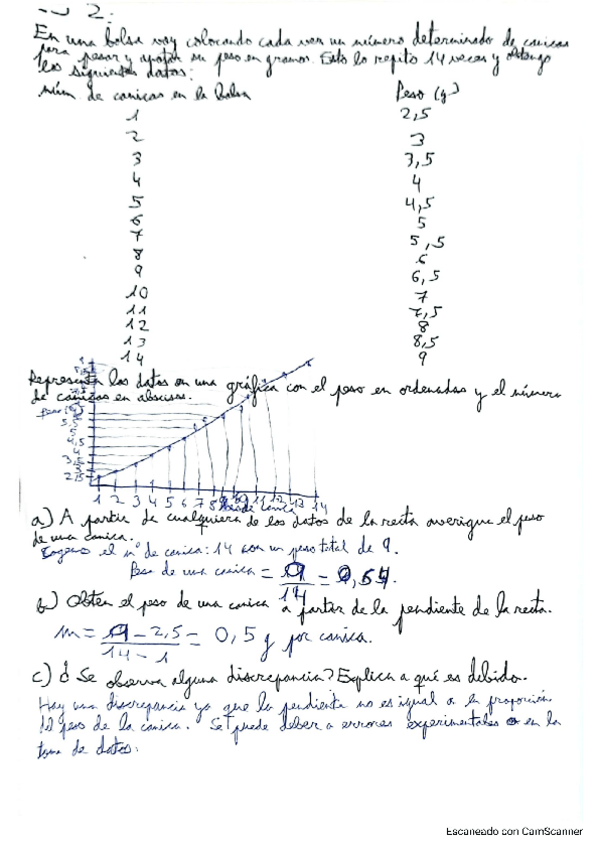 2:
En una bolsa voy colocando cada vez un número determinado de canicas
para pesar y apuntar su peso en gramos. Esto lo repito 14 veces y obtengo
los siguientes datos:
núm de canicas en la bolsa Peso (g)
1 2,5
2 3
3 3,5
4 4
5 4,5
6 5
7 5,5
8 6
9 6,5
10 7
11 7,5
12 8
13 8,5
14 9
Representa los datos en una gráfica con el peso en ordenadas y el número
de canicas en abscisas.
1 2 3 4 5 6 7 8 9 10 11 12 13 14
a) A partir de cualquiera de los datos de la recta averigue el peso
de una canica.
Cogemos el nº de canica: 14 con un peso total de 9.
Peso de una canica = 9/14 = 0,64.
b) Obten el peso de una canica a partir de la pendiente de la recta.
m = 9-2,5/14-1 = 0,5 g por canica.
c) ¿Se observa alguna discrepancia? Explica a qué es debido.
Hay una discrepancia ya que la pendiente no es igual a la proporción
del peso de la canica. Se puede deber a errores experimentales o en la
toma de datos.
Escaneado con CamScanner